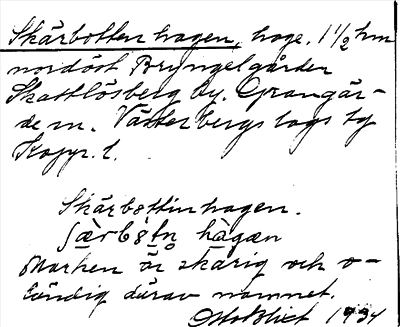 Skärbotten hagen, hage. 1 1/2 km
nordöst Bryngelgården
Skattlösberg by. Grangär-
de sn. Västerbergslags tg
Koppr. l.
Skärbottinhagen.
hàgæn
Marken är skärig och o-
ländig därav namnet.
Otto Blixt 1934